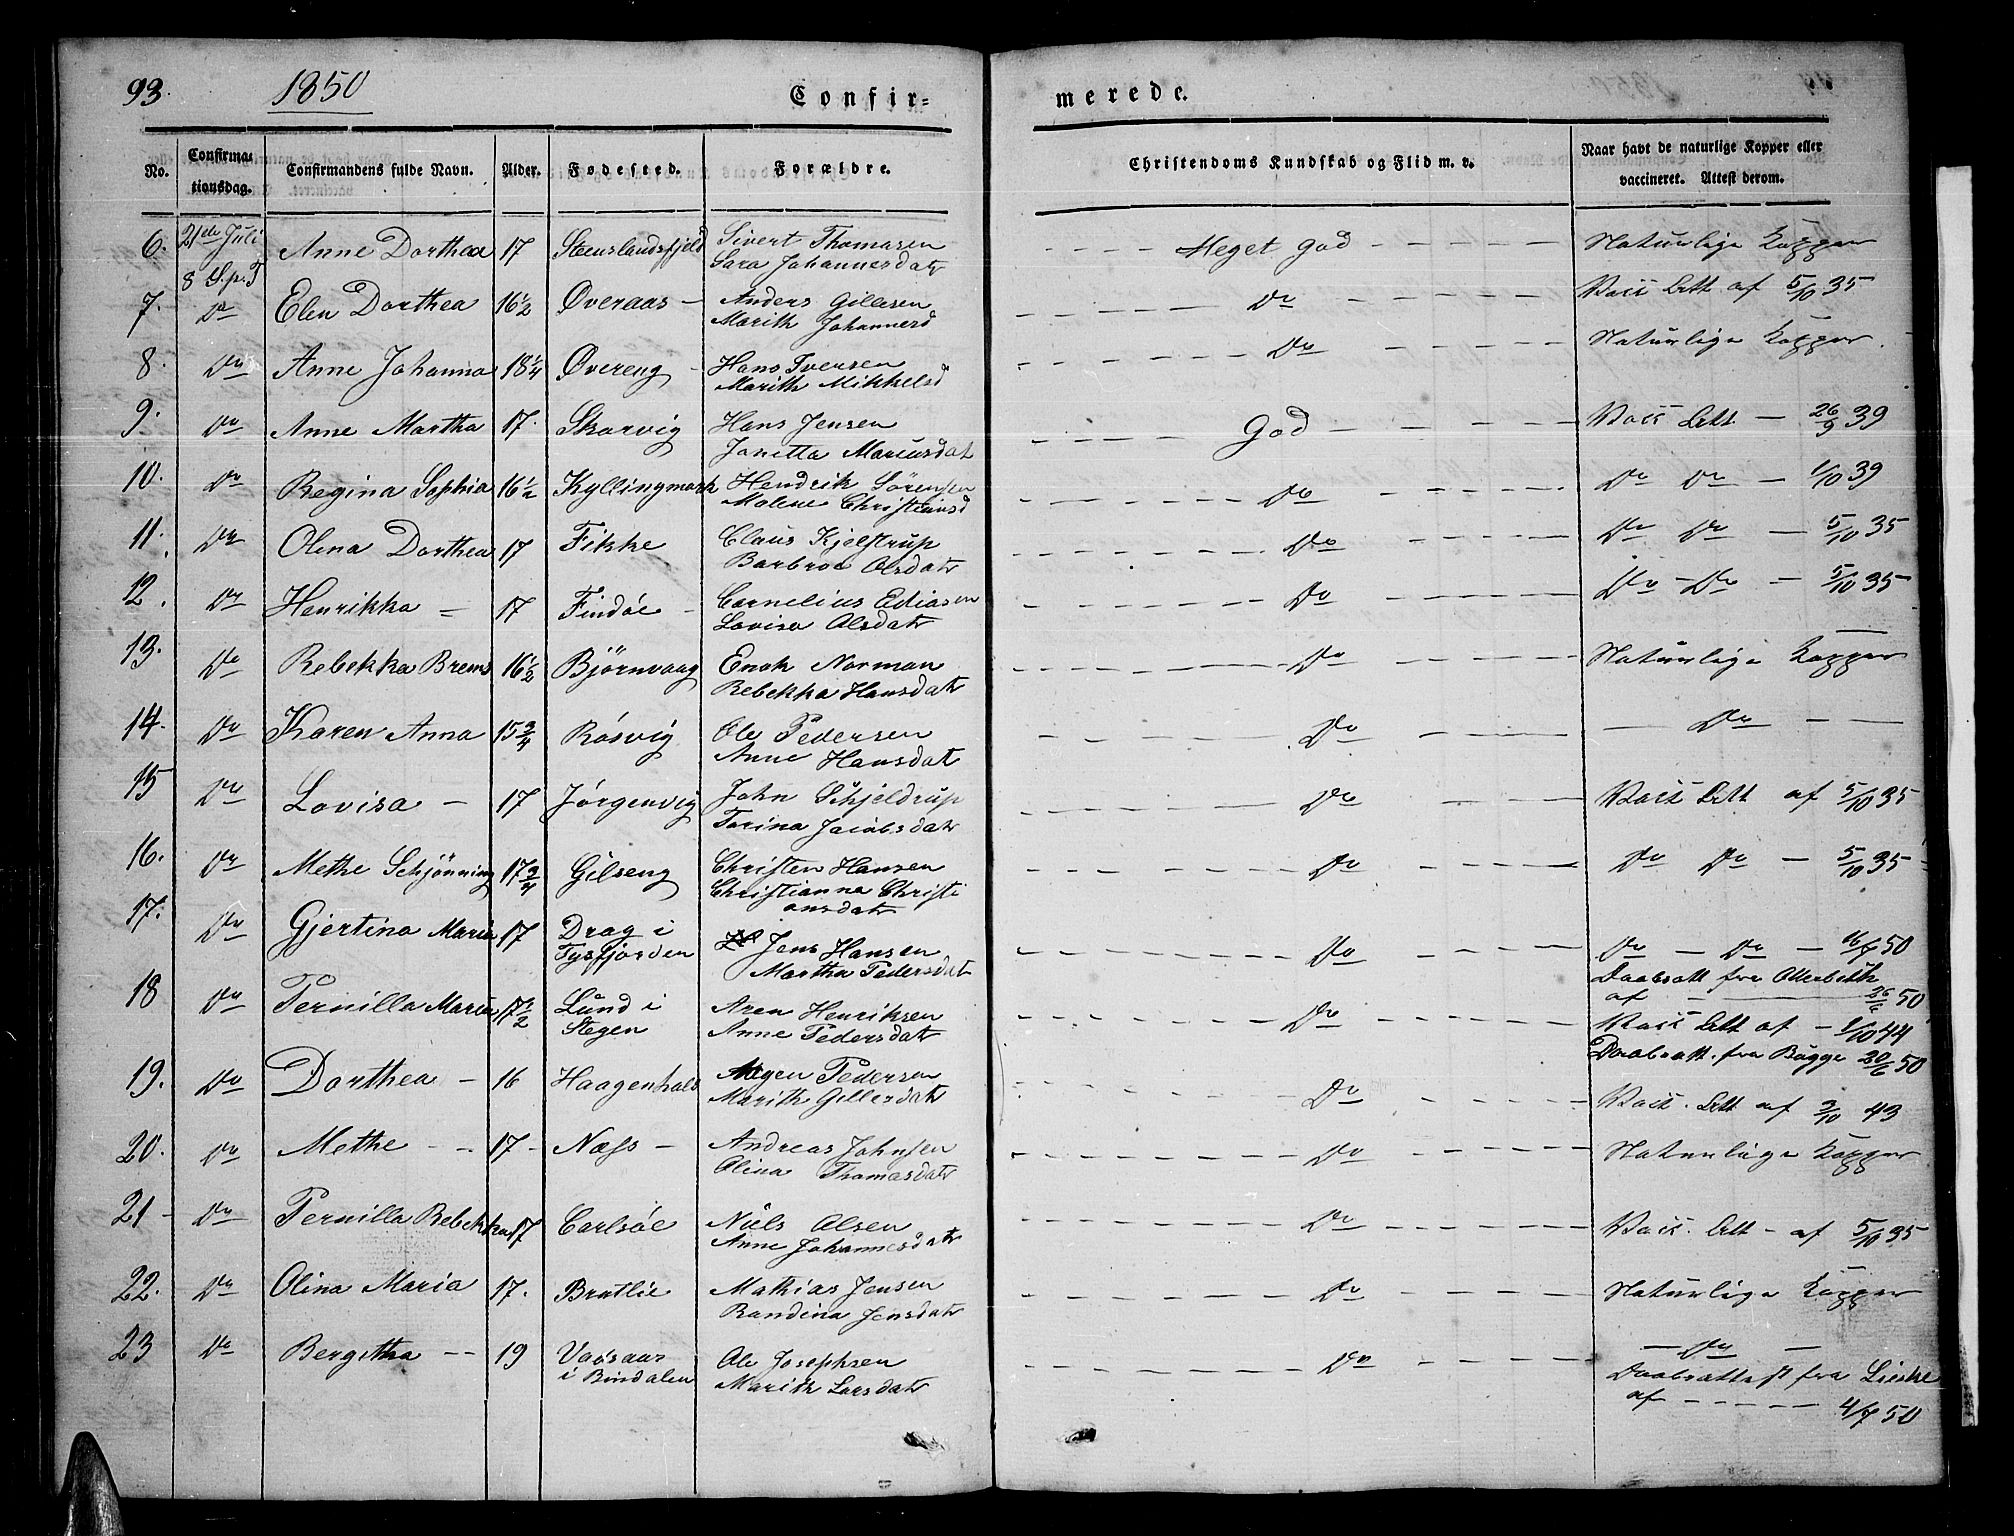 93. 1850
Confir=
merede.
No. Confirma=tionsdag. Confirmandens fulde Navn. Alder. Fødested. Forældre. Christendoms Kundskab og Flid m. v. Naar havt de naturlige Kopper eller vaccineret. Attest derom.
6. 21de Juli 8 S. p. T Anne Dorthea 17 Steenslandsfjeld Sivert Thomasen
Sara Johannesdatr Meget God Naturlige Kopper
7. Do Elen Dorthea 16 1/2 Øveraas Anders Gillesen
Marith Johannesd Do Vacc Att af 5/10 35
8. Do Anne Johanna 18 1/4 Øvereng Hans Iversen
Marith Mikkelsd Do Naturlige Kopper.
9. Do Anne Martha 17. Skarvig Hans Jensen
Janetta Mariusdat God Vacc Att. — 26/9 39
10. Do Regina Sophia 16 1/2 Kyllingmark Hendrik Sörensen
Malene Christiansd Do Do Do — 1/10 39
11. Do Olina Dorthea 17 Fikke Claus Kjelstrup
Barbroe Olsdatr Do Do Do — 5/10 35
12. Do Henrikka — 17 Findöe Cornelius Ediasen
Lovisa Olsdatr Do Do — Do — 5/10 35
13. Do Rebekka Brems 16 1/2 Bjørnvaag Enok Norman
Rebekka Hansdatr Do Naturlige Kopper
14. Do Karen Anna 15 3/4 Rösvig Ole Pedersen
Anne Hansdatr Do — Do —
15 Do Lovisa — 17 Jörgenvig John Schjeldrup
Torina Jacobsdatr Do Vacc Att af 5/10 35
16. Do Methe Schjönning 17 3/4 Gilseng Christen Hansen
Christianna Christi
ansdatr Do Do Do — 5/10 35
17. Do Gjertina Maria 17 Drag i
Tysfjorden Jens Hansen
Martha Pedersdatr Do Do — Do — 16/7 50
Daabsatt fra Otterbekk
af — 26/6 50
18 Do Pernilla Maria 17 1/2 Lund i
Stegen Aren Henriksen
Anne Pedersdatr Do Vacc Att af — 1/10 44
Daabsatt. fra Bugge 20/6 50
19. Do Dorthea — 16 Haagenhals Mogen Pedersen
Marith Gillesdatr Do Vacc. Att af 3/10 43
20. Do Methe — 17 — Næss — Andreas Johnsen
Olina Thomasdatr Do Naturlige Kopper
21 — Do Pernilla Rebekka 17 Carlsöe Niels Olsen
Anne Johannesdatr Do Vacc. Att — af 5/10 35
22. Do Olina Maria 17. Bratlie Mathias Jensen
Randina Jensdatr Do Naturlige Kopper
23 Do Bergitha — 19
i Bindalen Ole Josephsen
Marith Larsdatr Do — Do —
Daabsattest fra
af — 4/7 50